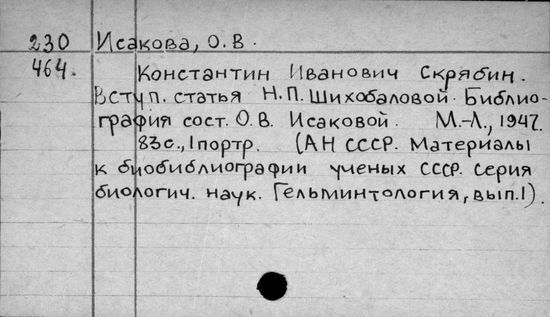 230 Исакова, О.В.
464. Константин Иванович Скрябин.
Вступ. статья Н.П. Шихобаловой. Библио-
графия сост. О.В. Исаковой. М.-Л., 1947.
83с., 1портр. (АН СССР. Материалы
к биобиблиографии ученых СССР. Серия
биологич. наук. Гельминтология, вып.1).